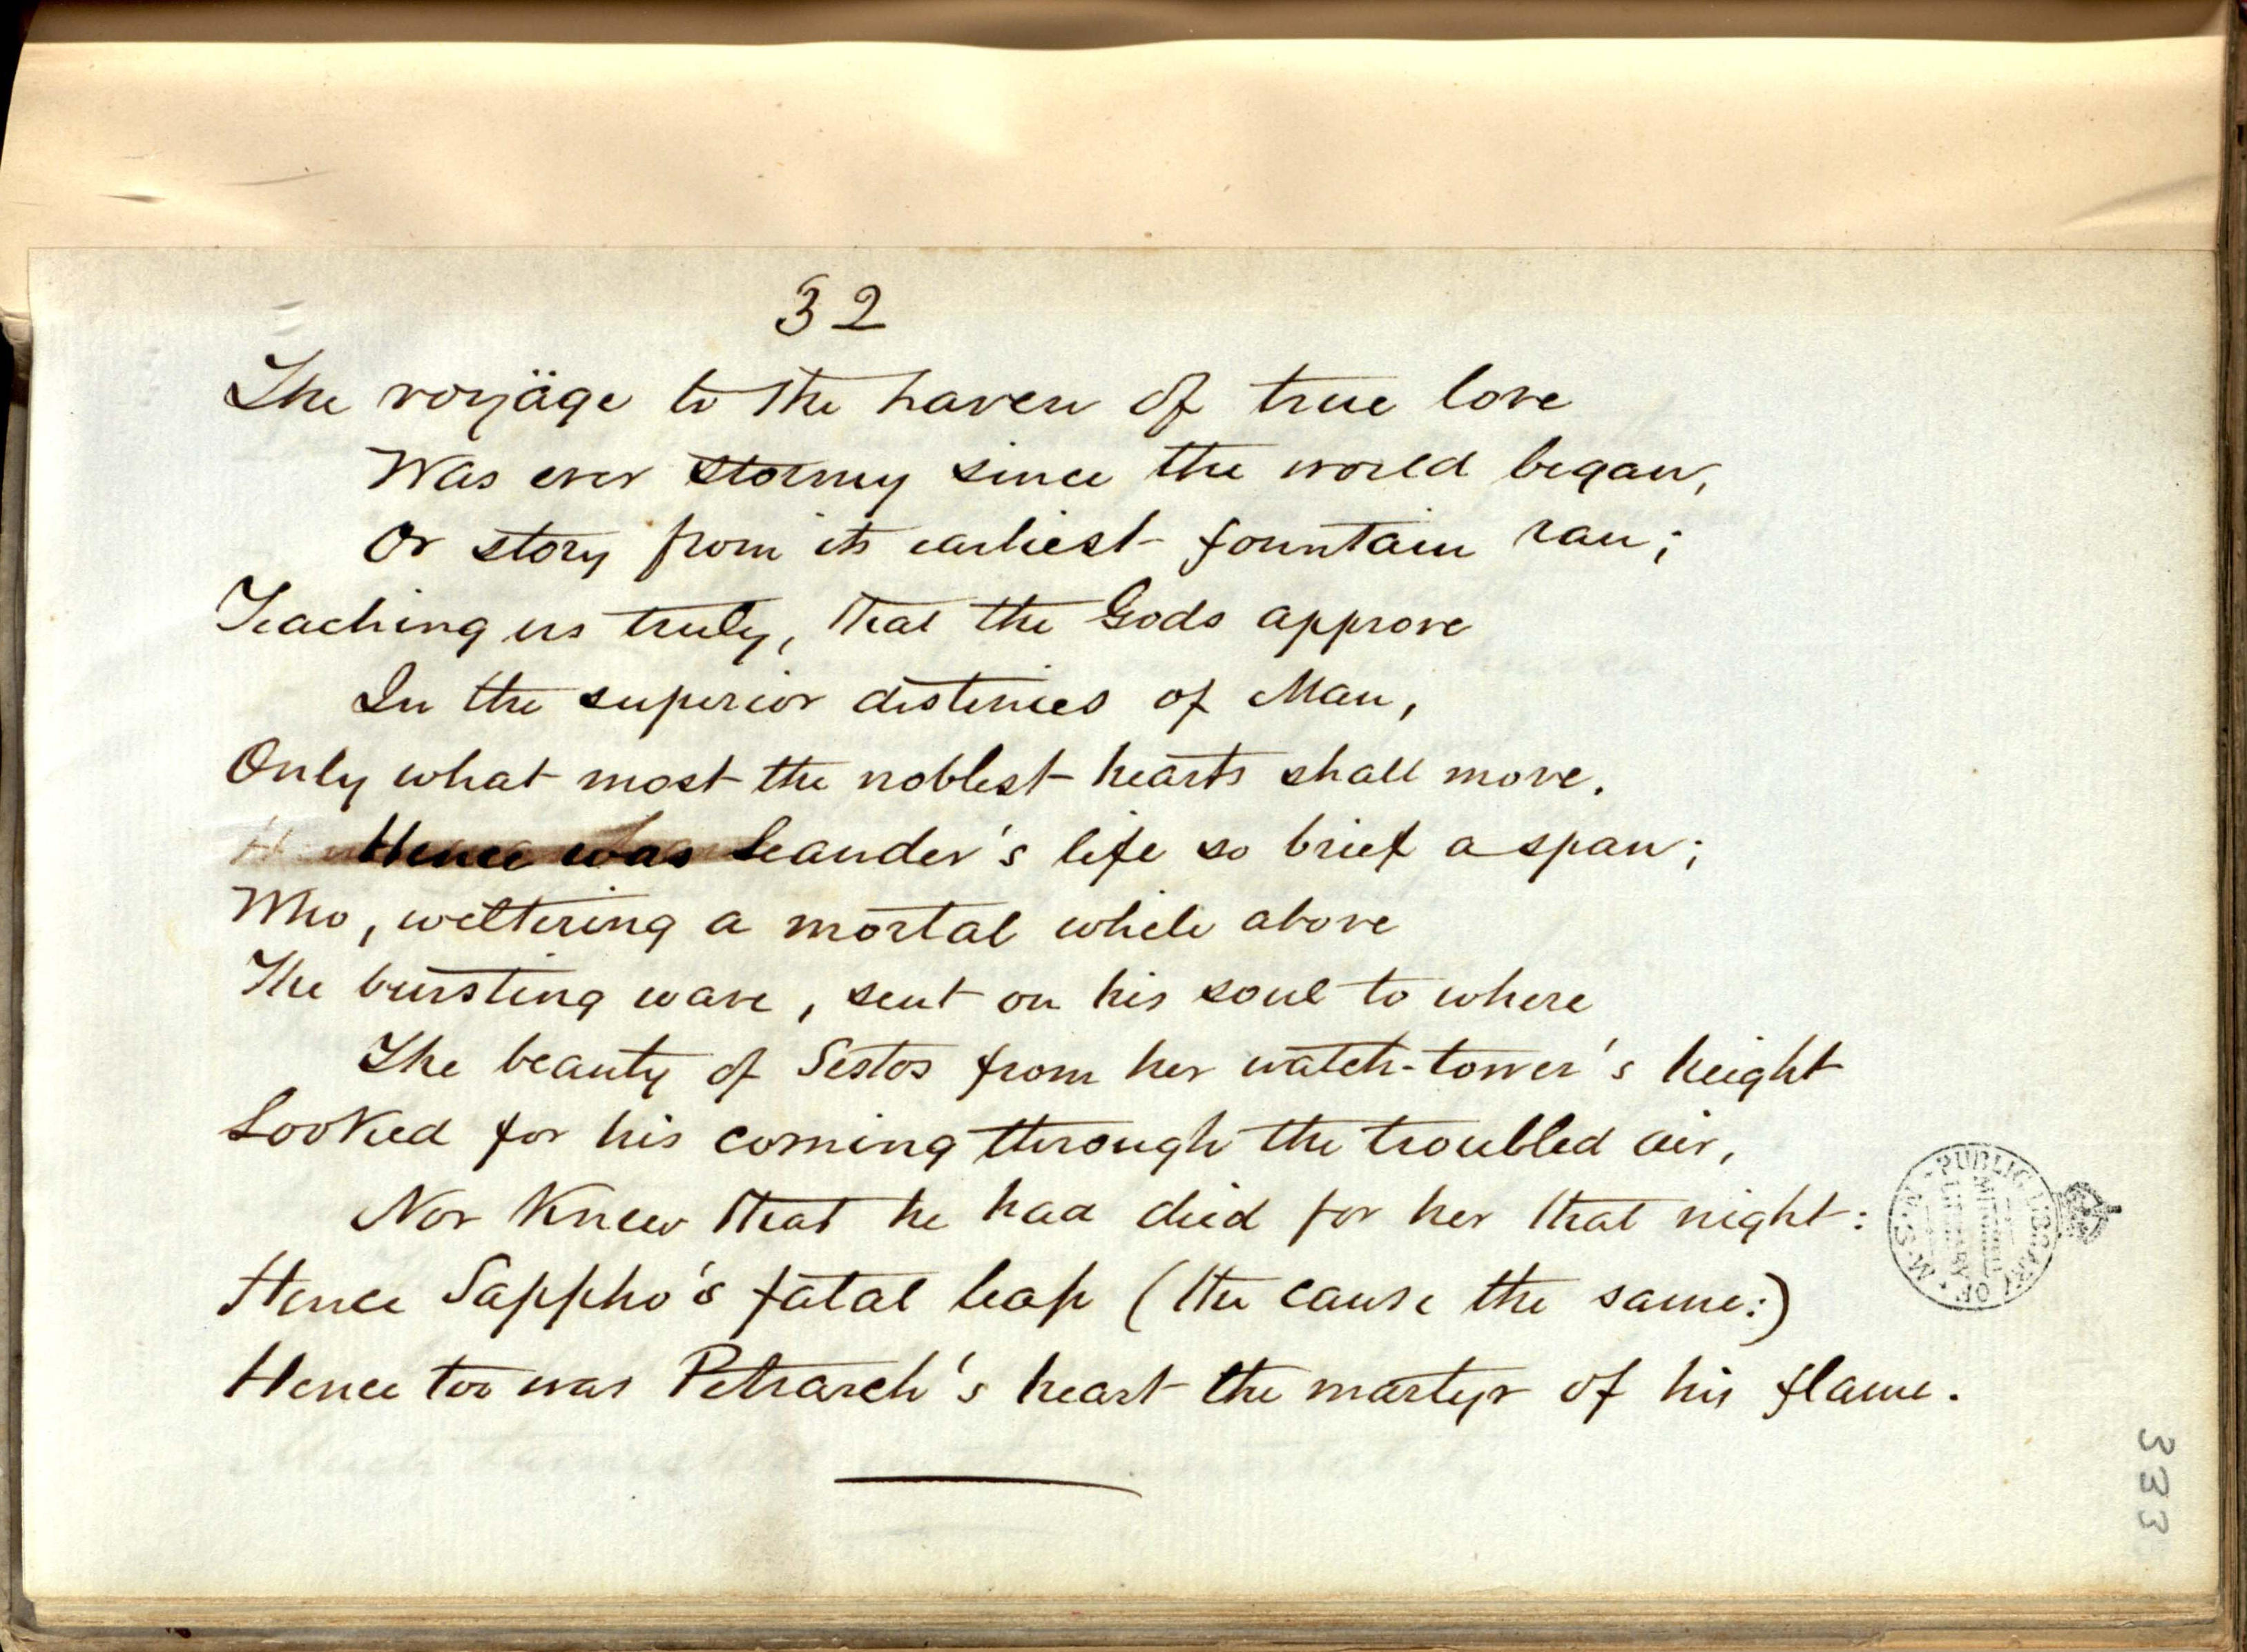 32
The voyäge to the haven of true love
Was ever stormy since the world began,
Or story from its earliest fountain ran;
Teaching us truly, that the Gods approve
In the superior destinies of Man,
Only what most the noblest hearts shall move.
Hence was Leander's life so brief a span;
Who, weltering a mortal while above
The bursting wave, sent on his soul to where
The beauty of Sestos from her watch-tower's height
Looked for his coming through the troubled air,
Nor knew that he had died for her that night:
Hence Sappho's fatal leap (the cause the same:)
Hence too was Petrarch's heart the martyr of his flame.
PUBLIC LIBRARY OF N.S.W.
MITCHELL LIBRARY
333